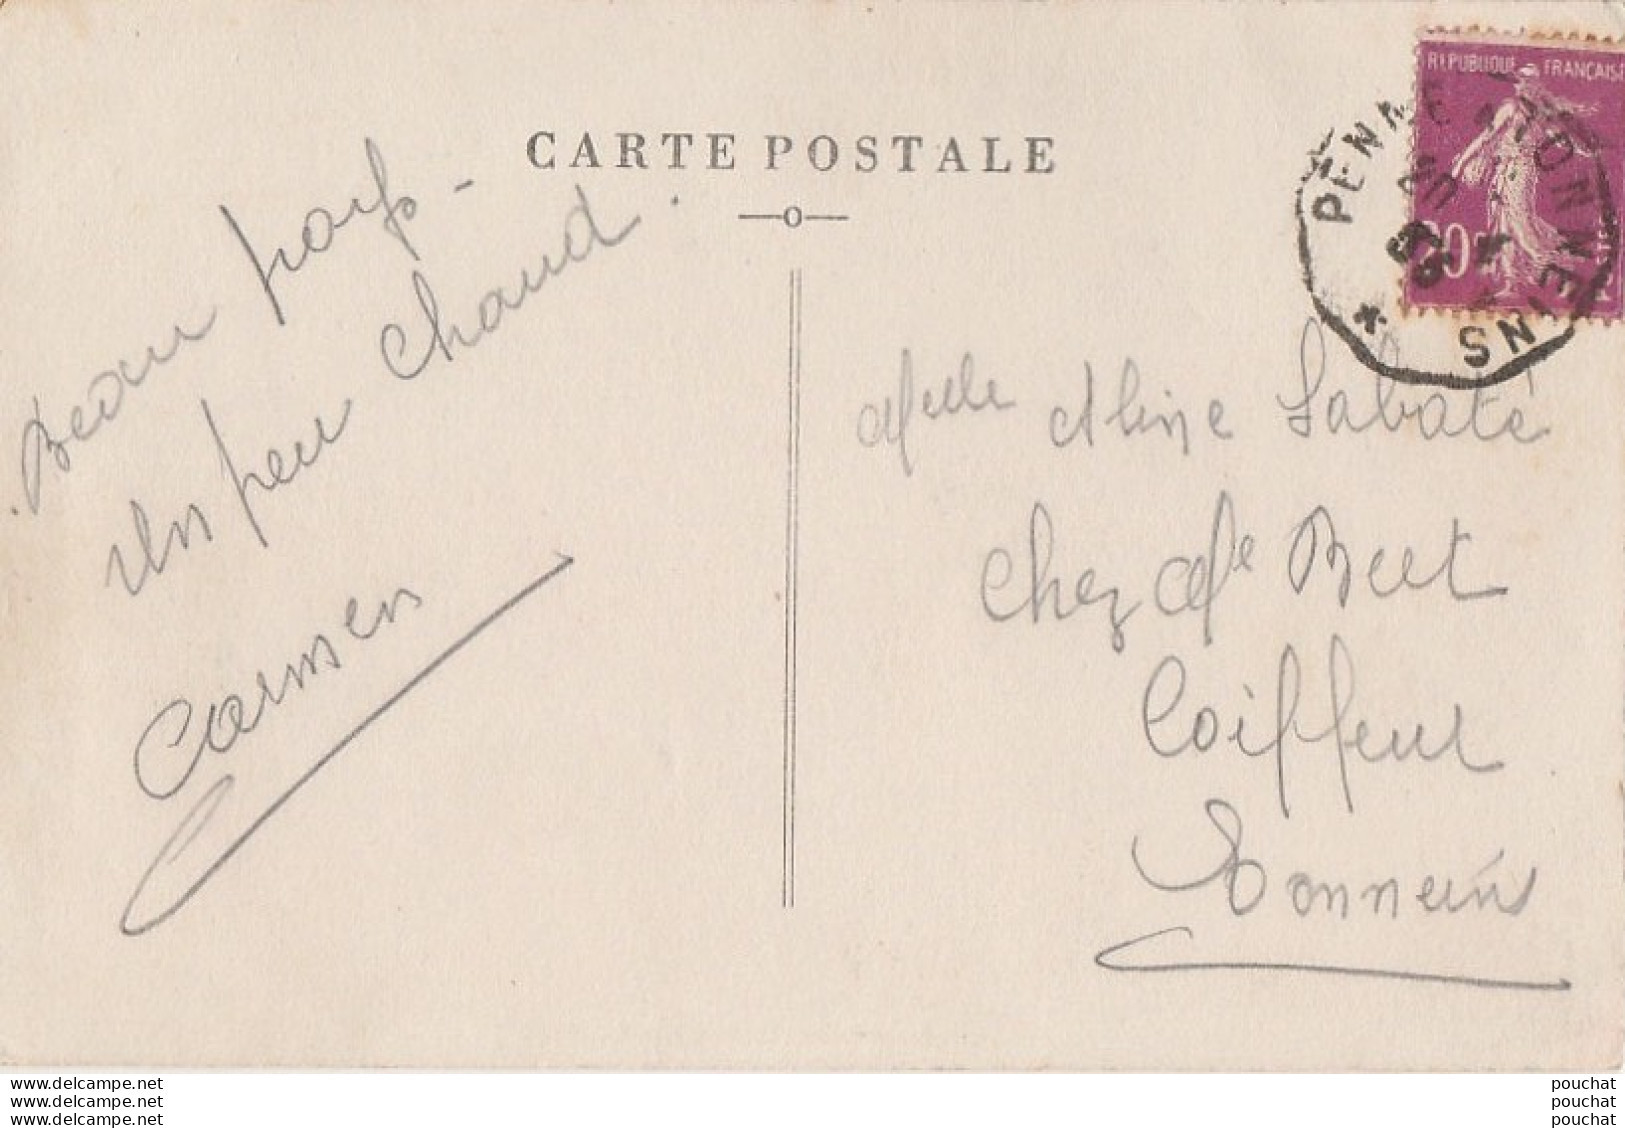 CARTE POSTALE
Beau pays -
Un peu chaud.
Carmen
REPUBLIQUE FRANÇAISE
20
PENNE A TONNEINS
Melle Aline Sabaté
Chez Me Bert
Coiffeur
Tonneins
www.delcampe.net
www.delcampe.net
www.delcampe.net
pouchat
pouchat
pouchat